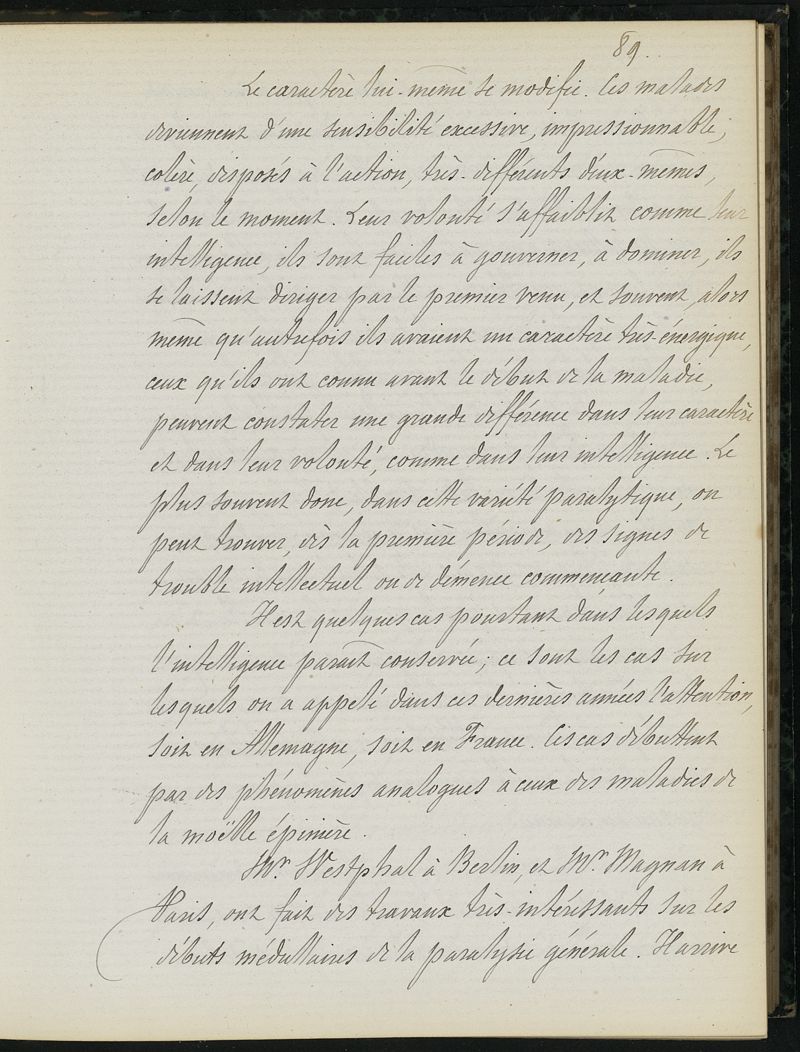 89.
Le caractère lui-même se modifie. Ces malades
deviennent d'une sensibilité excessive, impressionnable,
colère, disposés à l'action, très-différents d'eux-mêmes,
selon le moment. Leur volonté s'affaiblit comme leur
intelligence, ils sont faciles à gouverner, à dominer, ils
se laissent diriger par le premier venu, et souvent, alors
même qu'autrefois ils avaient un caractère très-énergique,
ceux qu'ils ont connu avant le début de la maladie,
peuvent constater une grande différence dans leur caractère
et dans leur volonté, comme dans leur intelligence. Le
plus souvent donc, dans cette variété paralytique, on
peut trouver, dès la première période, des signes de
trouble intellectuel ou de démence commençante.
Il est quelques cas pourtant dans lesquels
l'intelligence paraît conservée; ce sont les cas sur
lesquels on a appelé dans ces dernières années l'attention,
soit en Allemagne, soit en France. Ces cas débuttent
par des phénomènes analogues à ceux des maladies de
la moëlle épinière.
Mr. Westphal à Berlin, et Mr. Magnan à
Paris, ont fait des travaux très-intéressants sur les
débuts médullaires de la paralysie générale. Il arrive